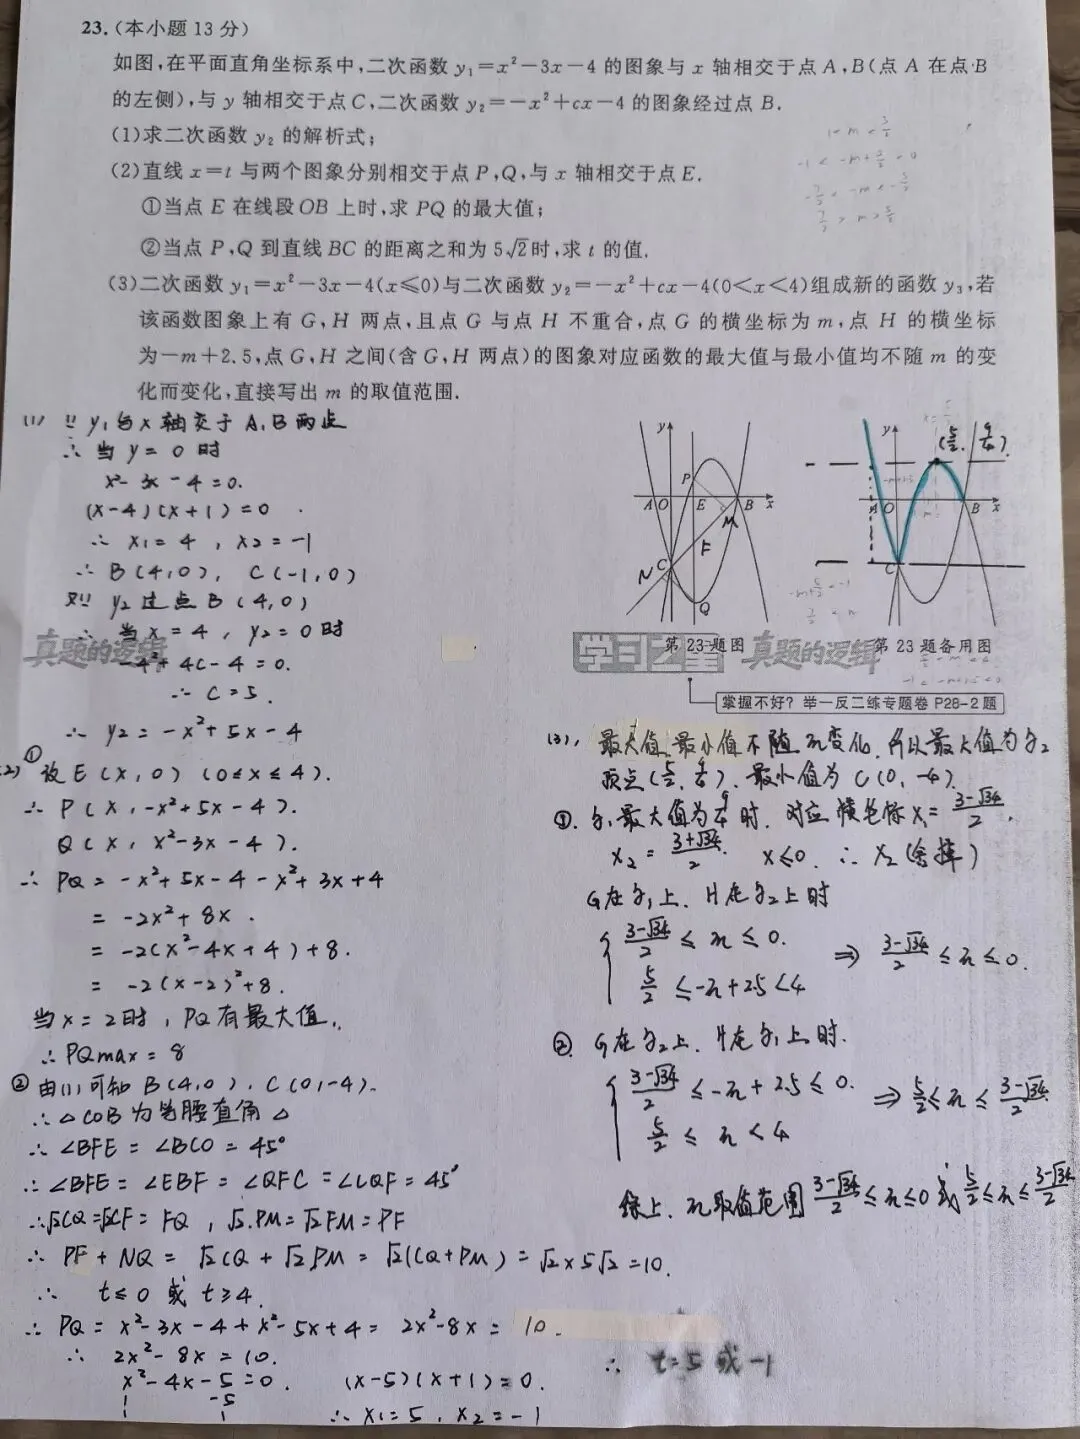 23.(本小题13分)
如图,在平面直角坐标系中,二次函数 y₁=x²-3x-4 的图象与 x 轴相交于点 A,B(点 A 在点 B
的左侧),与 y 轴相交于点 C,二次函数 y₂=-x²+cx-4 的图象经过点 B.
(1)求二次函数 y₂ 的解析式;
(2)直线 x=t 与两个图象分别相交于点 P,Q,与 x 轴相交于点 E.
①当点 E 在线段 OB 上时,求 PQ 的最大值;
②当点 P,Q 到直线 BC 的距离之和为 5√2 时,求 t 的值.
(3)二次函数 y₁=x²-3x-4(x≤0)与二次函数 y₂=-x²+cx-4(0<x<4)组成新的函数 y₃,若
该函数图象上有 G,H 两点,且点 G 与点 H 不重合,点 G 的横坐标为 m,点 H 的横坐标
为-m+2.5,点 G,H 之间(含 G,H 两点)的图象对应函数的最大值与最小值均不随 m 的变
化而变化,直接写出 m 的取值范围.
(1) ∵ y₁与x轴交于A,B两点
∴ 当 y = 0 时
x²-3x-4=0.
(x-4)(x+1)=0
∴ x₁=4, x₂=-1
∴ B(4,0), C(-1,0)
又∵ y₂过点B(4,0)
∴ 当x=4, y₂=0时
-4²+4c-4=0.
∴ c=5.
∴ y₂=-x²+5x-4
(2)① 设E(x,0)(0≤x≤4).
∴ P(x,-x²+5x-4).
Q(x, x²-3x-4).
∴ PQ=-x²+5x-4-x²+3x+4
= -2x²+8x.
= -2(x²-4x+4)+8.
= -2(x-2)²+8.
当x=2时,PQ有最大值.
∴ PQmax=8
② 由(1)可知 B(4,0), C(0,-4).
∴ △COB为等腰直角△
∴ ∠BFE=∠BCO=45°
∴ ∠BFE=∠EBF=∠QFC=∠CQF=45°
∴√2CQ=√2CF=FQ, √2.PM=√2FM=PF
∴ PF+NQ=√2CQ+√2PM=√2(CQ+PM)=√2×5√2=10.
∴ t≤0 或 t≥4.
∴ PQ=x²-3x-4+x²-5x+4=2x²-8x=10.
∴ 2x²-8x=10.
x²-4x-5=0. (x-5)(x+1)=0.
1 -5
1 1 ∴ x₁=5, x₂=-1
∴ t=5或-1
y
P
A O E B x
M
F
N C
Q
第23题图
y
(5/2, 9/4)
A O B x
C
第23题备用图
真题的逻辑
真题的逻辑
掌握不好? 举一反二练专题卷 P28-2题
(3), 最大值、最小值不随m变化,所以最大值为y₂
顶点(5/2, 9/4). 最小值为C(0,-4).
①. y₁最大值为9/4时. 对应横坐标x₁=(3-√34)/2.
x₂=(3+√34)/2. x≤0. ∴ x₂(舍掉)
G在y₁上、H在y₂上时
{ (3-√34)/2≤m≤0. ⇒ (3-√34)/2≤m≤0.
5/2≤-m+2.5<4
②. G在y₂上、H在y₁上时.
{ (3-√34)/2≤-m+2.5≤0. ⇒ 5/2≤m≤(3-√34)/2
5/2≤m<4
综上、m取值范围(3-√34)/2≤m≤0或5/2≤m≤(3-√34)/2